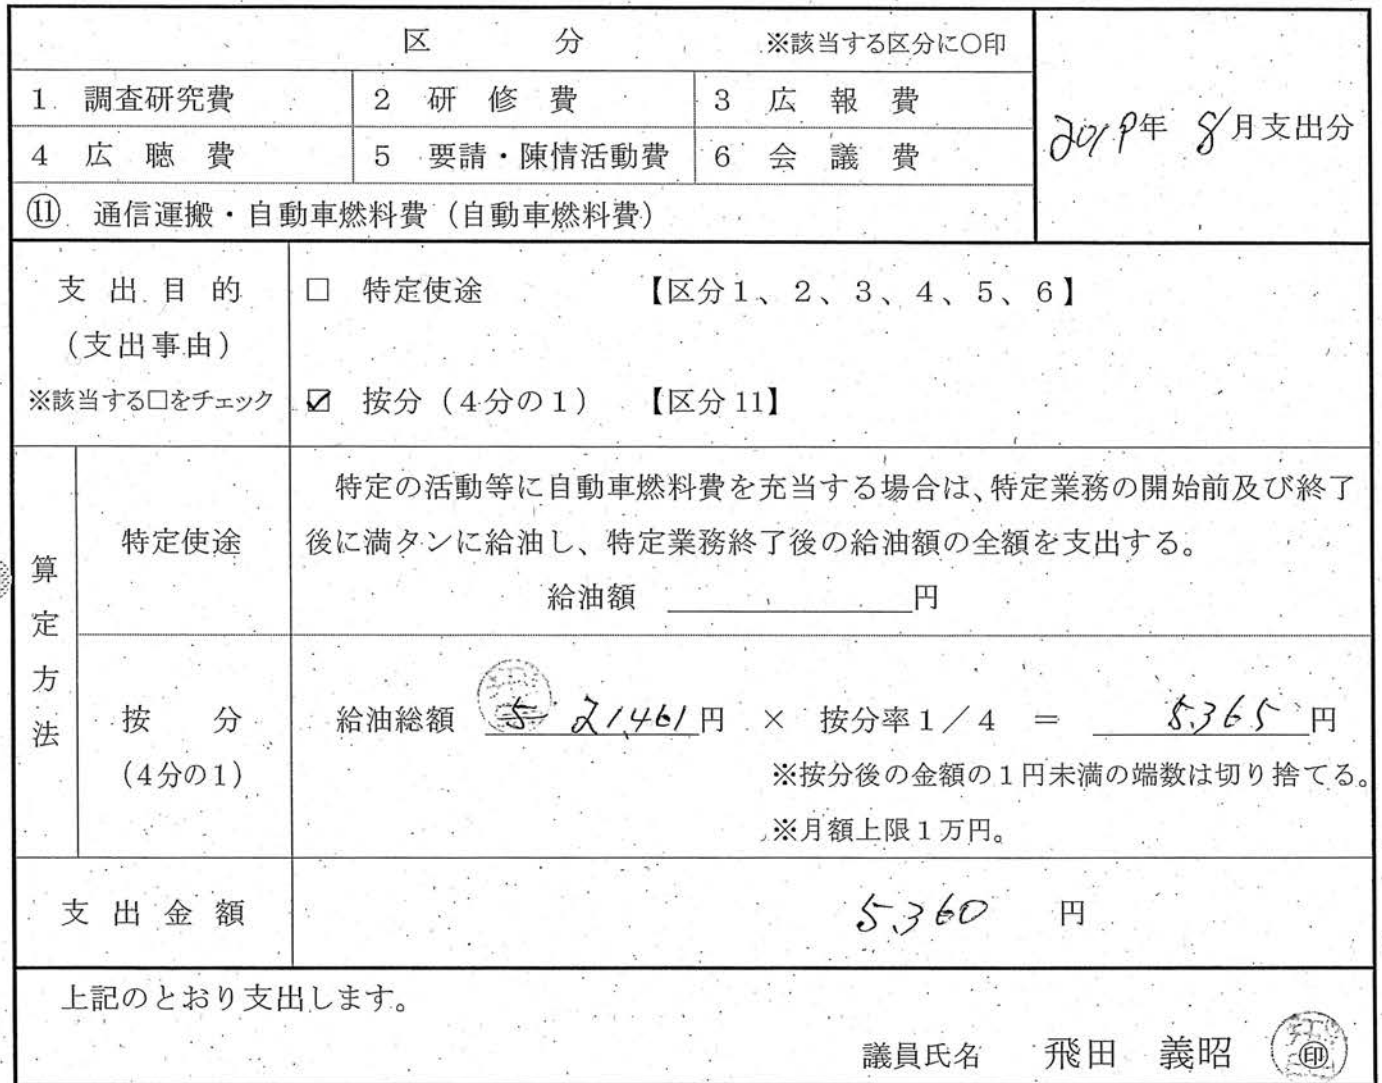 区　　分　　※該当する区分に○印
1 調査研究費　2 研修費　3 広報費
2019年 8月支出分
4 広聴費　5 要請・陳情活動費　6 会議費
⑪ 通信運搬・自動車燃料費（自動車燃料費）
支出目的　□ 特定使途　【区分1、2、3、4、5、6】
（支出事由）
※該当する□をチェック　☑ 按分（4分の1）　【区分11】
算定方法
特定使途
特定の活動等に自動車燃料費を充当する場合は、特定業務の開始前及び終了
後に満タンに給油し、特定業務終了後の給油額の全額を支出する。
給油額　　　円
按分
（4分の1）
給油総額 5 21,461円 × 按分率1／4 ＝ 5,365円
※按分後の金額の1円未満の端数は切り捨てる。
※月額上限1万円。
支出金額　5,360 円
上記のとおり支出します。
議員氏名　飛田 義昭　㊞